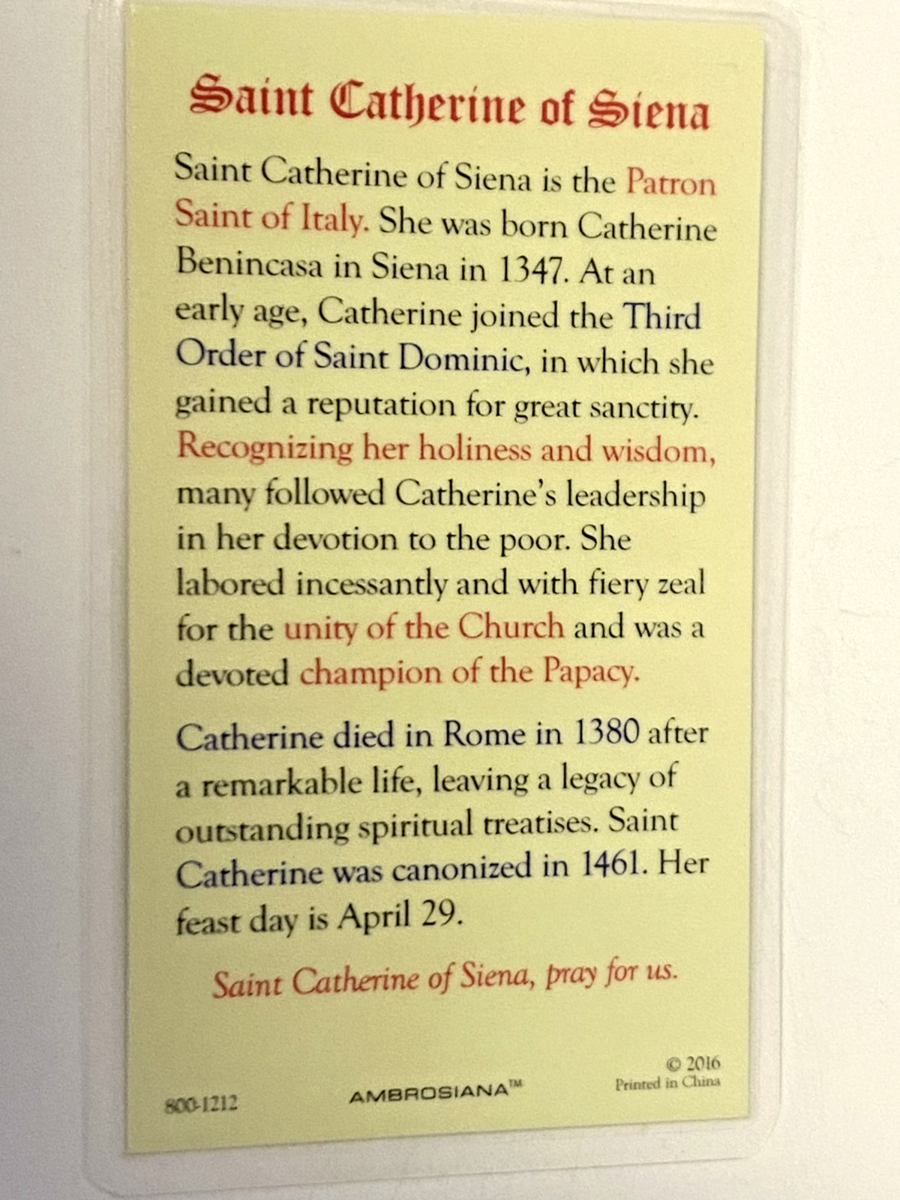 Saint Catherine of Siena
Saint Catherine of Siena is the Patron
Saint of Italy. She was born Catherine
Benincasa in Siena in 1347. At an
early age, Catherine joined the Third
Order of Saint Dominic, in which she
gained a reputation for great sanctity.
Recognizing her holiness and wisdom,
many followed Catherine's leadership
in her devotion to the poor. She
labored incessantly and with fiery zeal
for the unity of the Church and was a
devoted champion of the Papacy.
Catherine died in Rome in 1380 after
a remarkable life, leaving a legacy of
outstanding spiritual treatises. Saint
Catherine was canonized in 1461. Her
feast day is April 29.
Saint Catherine of Siena, pray for us.
800-1212
AMBROSIANA™
© 2016
Printed in China